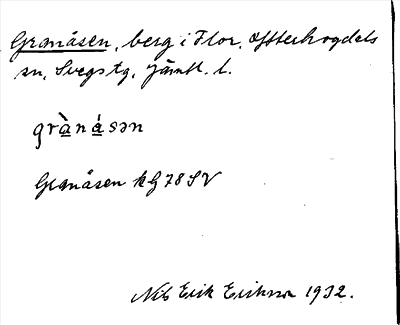 Granåsen, berg i Flor, Ytterhogdals
sn, Svegs tg, Jämtl. l.
grànásən
Granåsen kG 78 SV
Nils Erik Eriksson 1932.